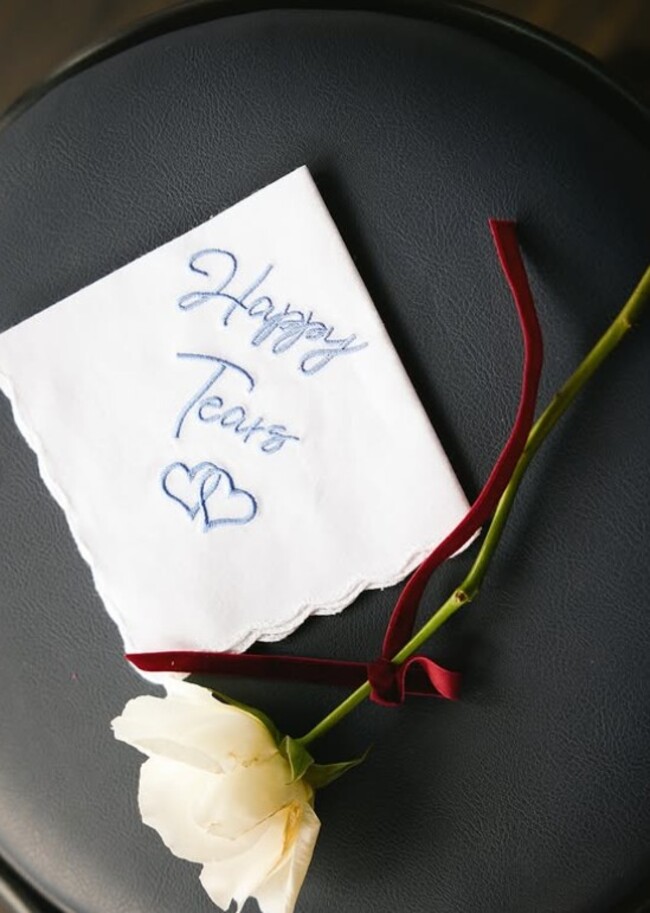 Happy
Tears